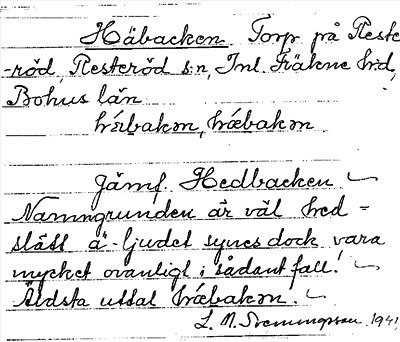 Häbacken. Torp på Reste-
-röd, Resteröd s:n, Inl. Fräkne hd,
Bohus län
hǽbakən, hæ̀bakən
Jämf. Hedbacken.
Namngrunden är väl hed =
slätt. ä-ljudet synes dock vara
mycket ovanligt i sådant fall!
Äldsta uttal hæ̀bakən.
1941